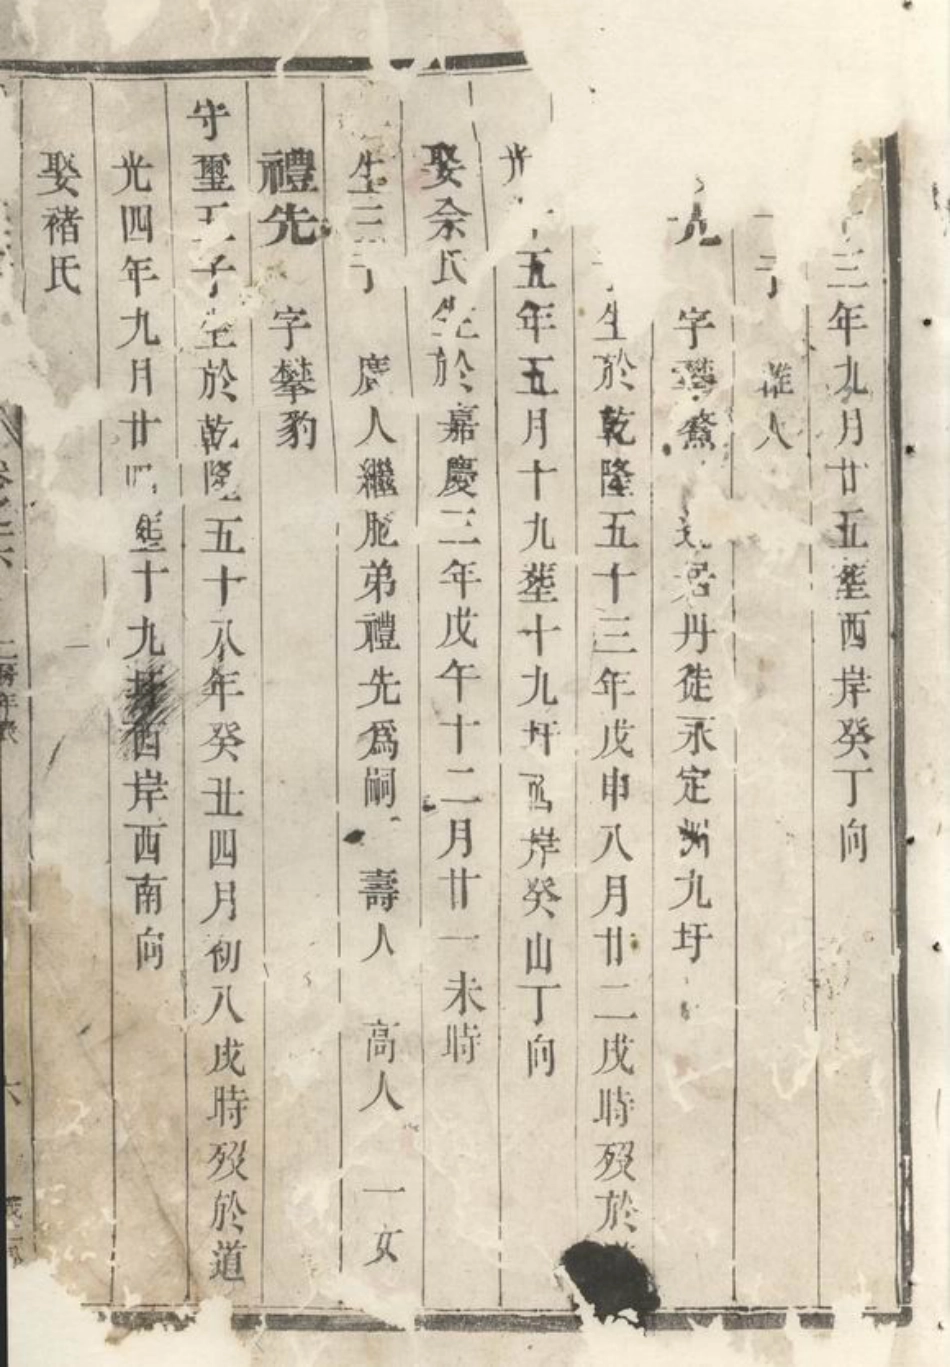 三年九月廿五塟西岸癸丁向
子 人
先 字 居丹徒永定洲九圩
生於乾隆五十三年戊申八月廿二戌時歿於
光 五年五月十九塟十九圩西岸癸山丁向
娶佘氏生於嘉慶三年戊午十二月廿一未時
生三子 慶人繼胞弟禮先為嗣 壽人 高人 一女
禮先 字攀豹
守璽五子生於乾隆五十八年癸丑四月初八戌時歿於道
光四年九月廿四塟十九圩西岸西南向
娶褚氏
卷之六 二房年表 六